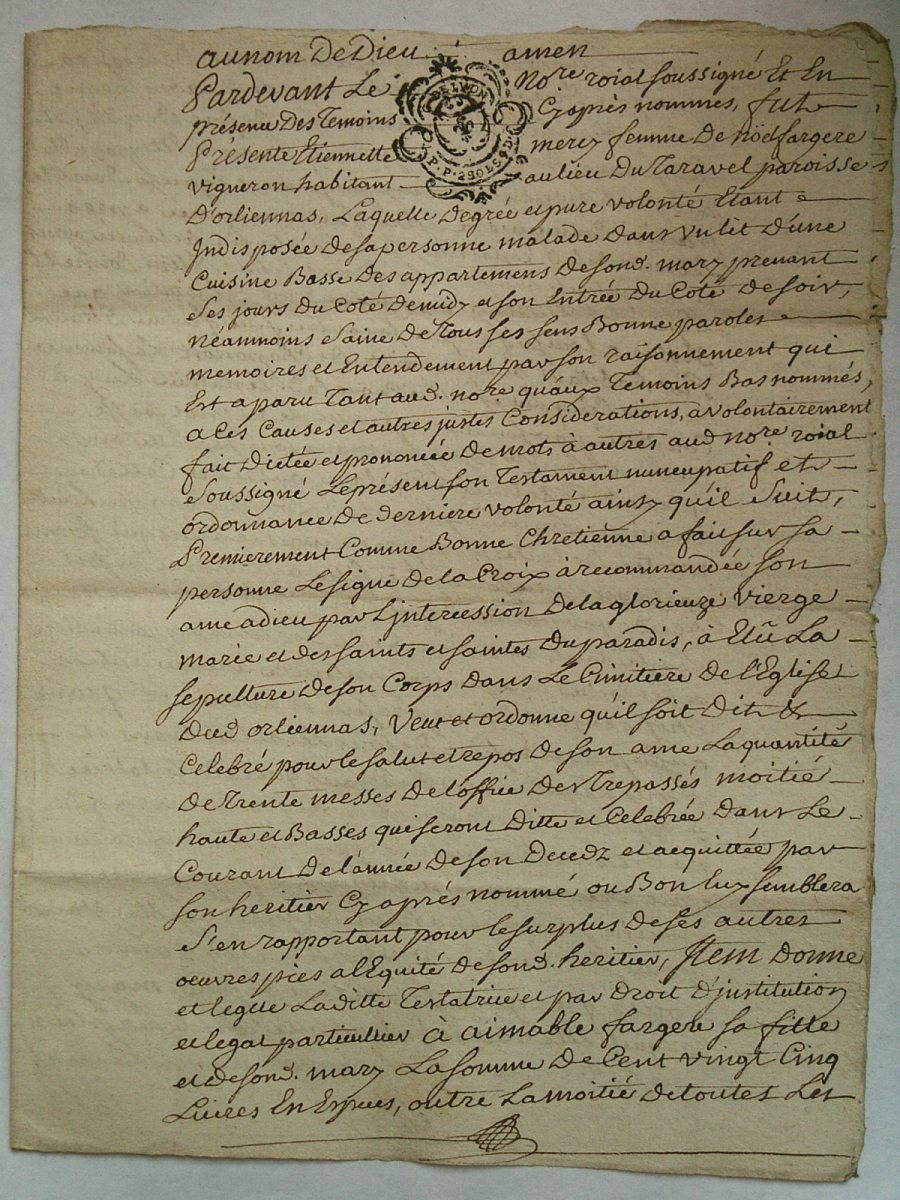 au nom De Dieu amen
Pardevant Le no.re roial soussigné Et En
présence Des Temoins Cy après nommés, fut
Présente Etiennette mercy femme De noël fargere
vigneron habitant au lieu Du Taravel paroisse
D'orliennas, Laquelle De gréé et pure volonté Etant
Indisposée de sa personne malade dans un lit D'une
Cuisine Basse Des appartemens De sond. mary prenant
Ses jours Du Coté De midy et son Entrée Du Coté De soir,
néanmoins Saine De Tous ses sens Bonne paroles
memoires et Entendement par son raisonnement qui
Est aparu Tant aud. no.re qu'aux Temoins Bas nommés,
a Ces Causes et autres justes Considerations, a volontairement
fait Dictée et prononcée De mots à autres aud no.re roial
Soussigné Le présent son Testament nuncupatif et
ordonnance De Derniere volonté ainsy qu'il Suit,
Premierement Comme Bonne Chretienne a fait sur sa
personne Le signe De la Croix à recommandée Son
ame a dieu par L'intercession De la glorieuze Vierge
marie et des saints et saintes Du paradis, à Elû La
sepulture De son Corps Dans Le Cimitiere De l'Eglise
Dud orliennas, Veut et ordonne qu'il soit Dit &
Celebré pour le salut et repos De son ame La quantité
De Trente messes De l'office Des Trepassés moitié
haute et Basses qui seront Ditte et Celebrée Dans Le
Courant De l'année De son Decedz et acquittée par
son heritier Cy aprés nommé ou Bon luy semblera
S'en rapportant pour le surplus De ses autres
oeuvres pies a l'Equité De sond. heritier, Item Donne
et legue Laditte Testatrice et par Droit D'institution
et legat particullier à aimable fargere sa fille
et de sond. mary La somme De Cent Vingt Cinq
Livres En Especes, outre La moitié de toutes Les